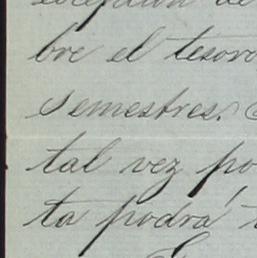 de
bre el tesoro
semestres.
tal vez po
ta podrá